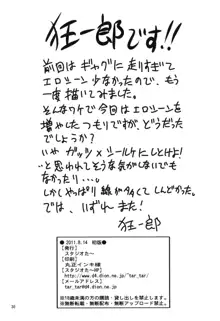 狂一郎です!!
前回はギャグに走りすぎて
エロシーン少なかったので、もう
一度描いてみました。
そんなワケで今回はエロシーンを
増やしたつもりですが、どうだった
でしょうか?
いや ガッツ×シールケにしとけよ!
…と思われてそうな気がしないでも
なかったり…
しかしやっぱり線が多くてしんどかった。
では、いずれまた!
狂一郎
●2011.8.14 初版●
【発行】
スタジオたー
【印刷】
丸正インキ様
【スタジオたーHP】
http://www.d4.dion.ne.jp/~tar_tar/
【メールアドレス】
tar_tar@d4.dion.ne.jp
※18歳未満の方の購読・貸し出しを禁ず
無断転載・無断配布・無断複写・無断アップを禁ず